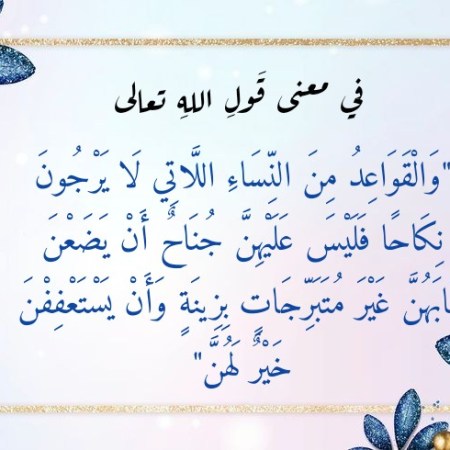 في معنى قَولِ اللهِ تعالى
"وَالْقَوَاعِدُ مِنَ النِّسَاءِ اللَّاتِي لَا يَرْجُونَ
نِكَاحًا فَلَيْسَ عَلَيْهِنَّ جُنَاحٌ أَنْ يَضَعْنَ
ابَهُنَّ غَيْرَ مُتَبَرِّجَاتٍ بِزِينَةٍ وَأَنْ يَسْتَعْفِفْنَ
خَيْرٌ لَهُنَّ"